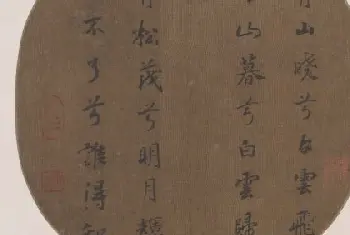 山曉兮白雲飛
山暮兮白雲歸
松茂兮明月輝
不了兮誰得知